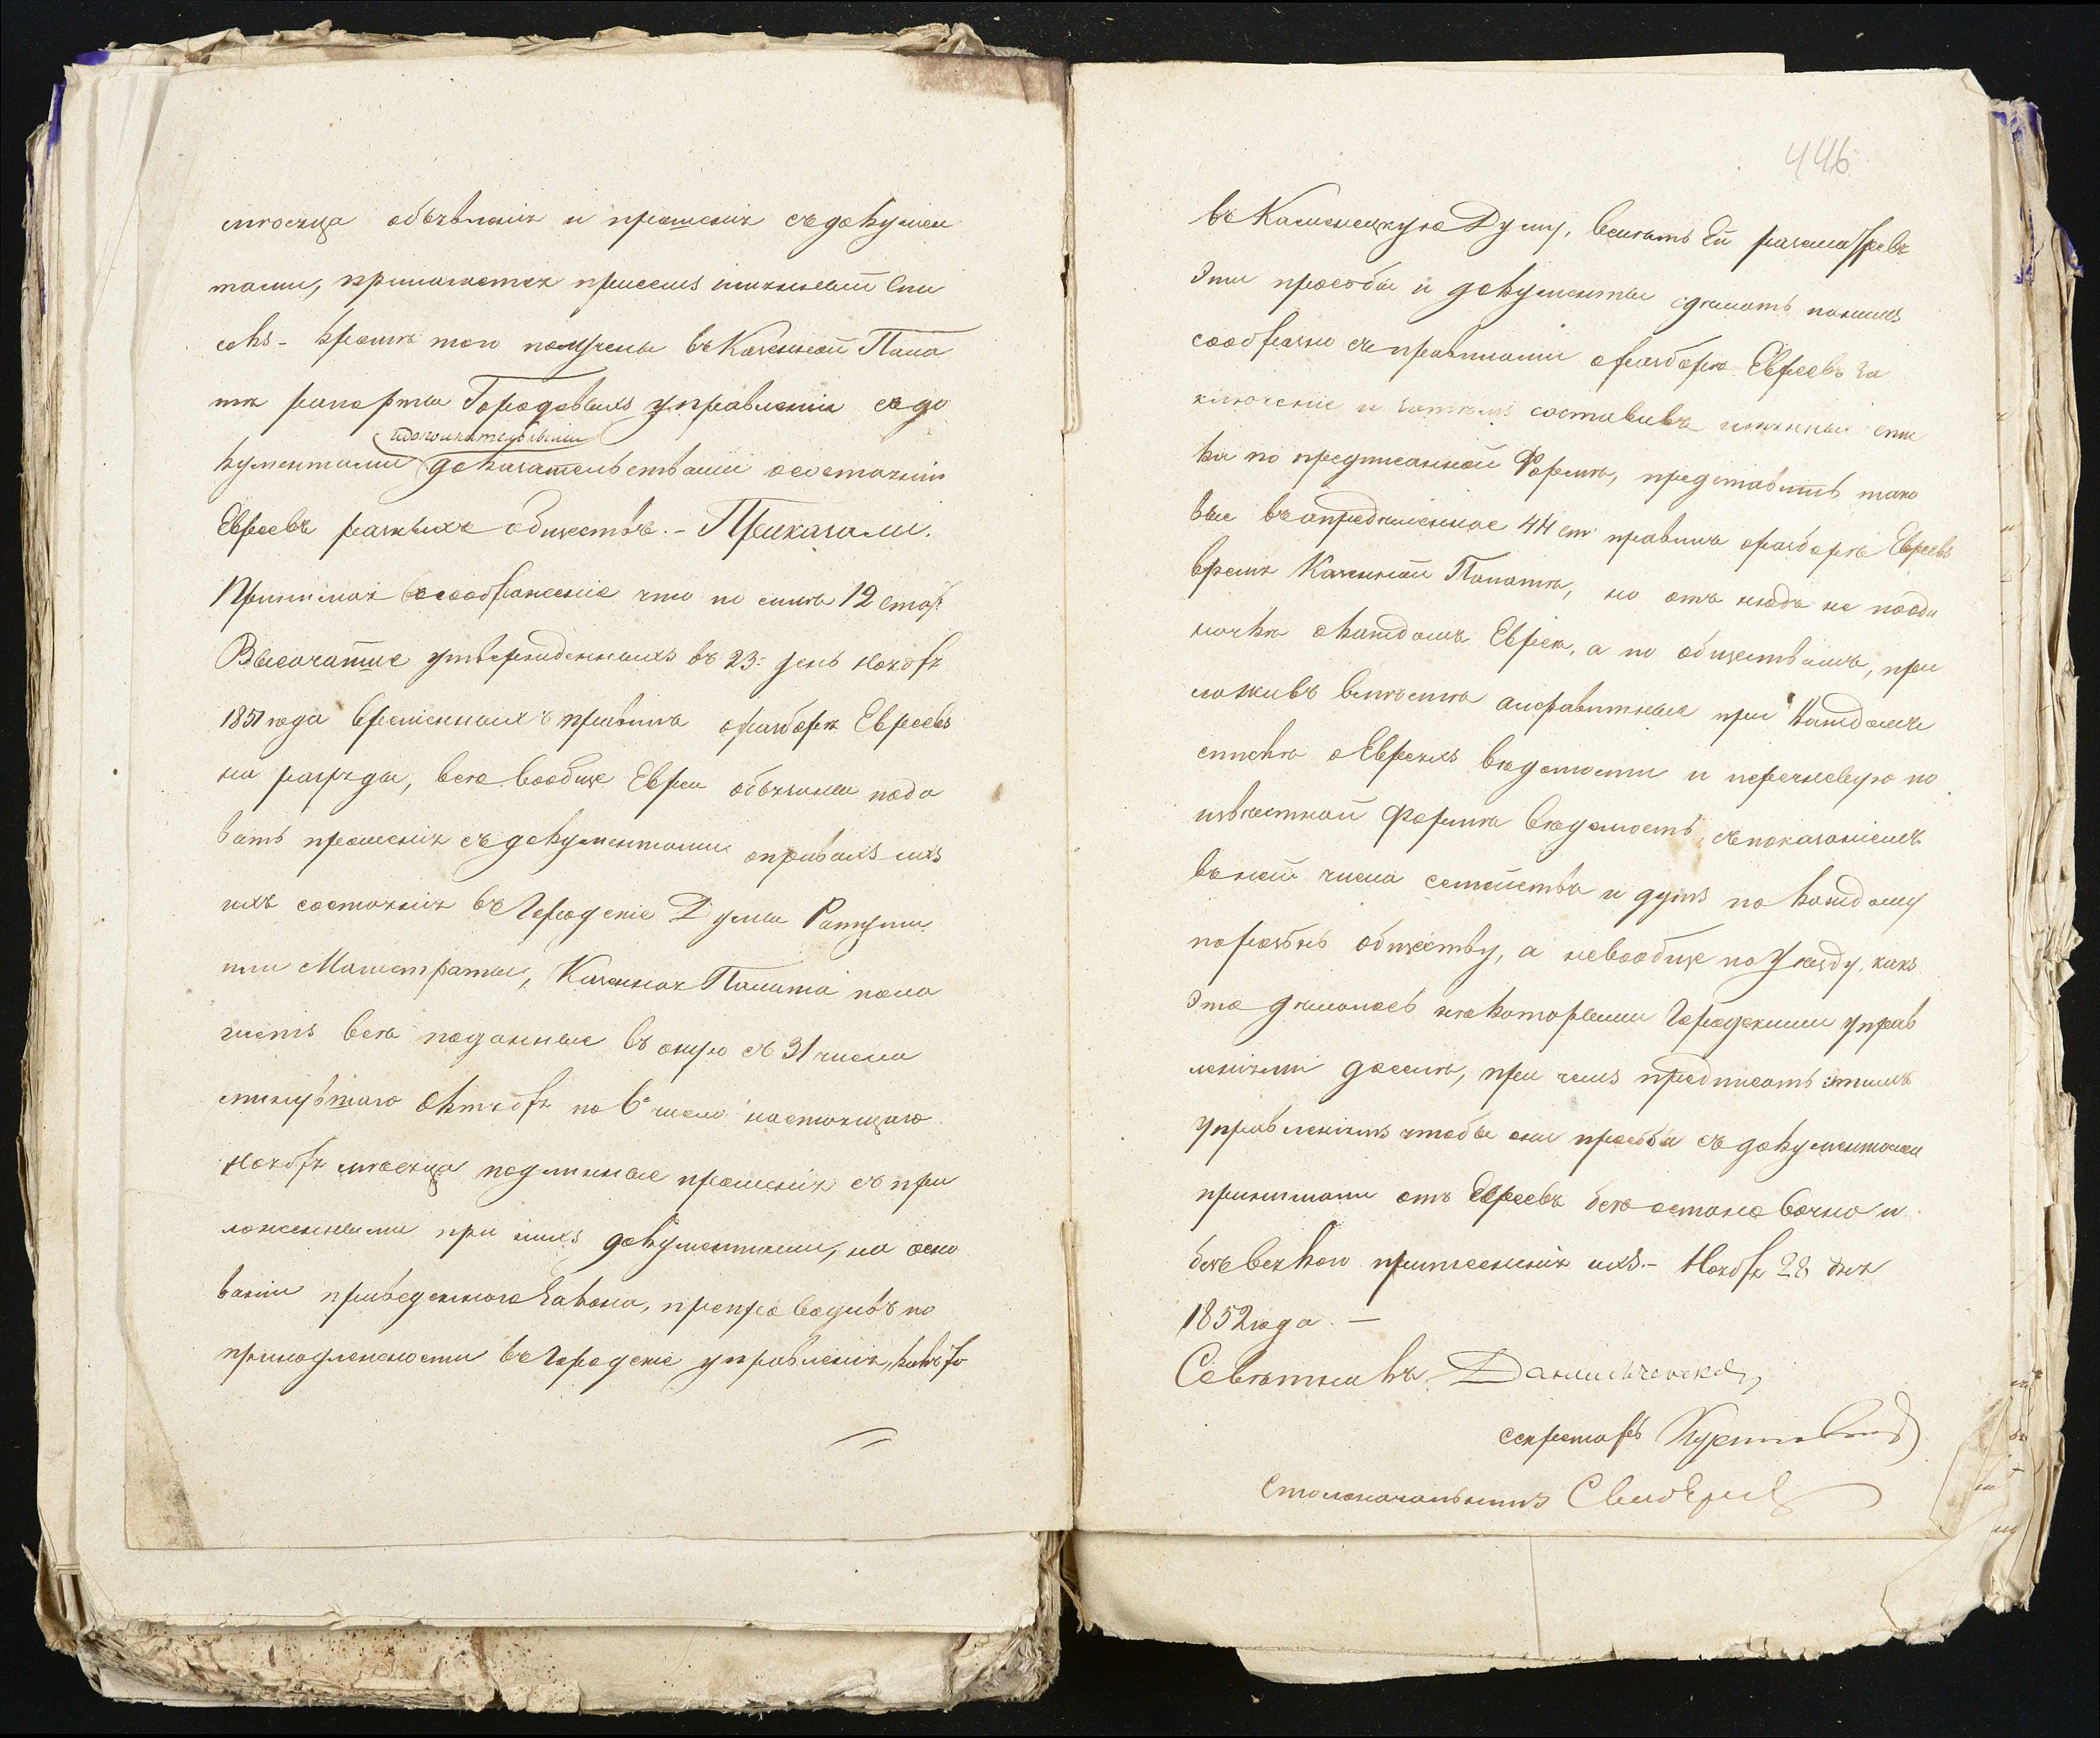 мѣсяца объявленія и прошенія съ докумен
тами, прилагается присемъ имянный спи
сокъ - кромѣ того получены въ Казенной Пала
тѣ рапорты Городовыхъ управленій съ до
кументами доказательствами о состояніи
Евреевъ разныхъ обществъ. - Приказали.
Принимая въ соображеніе что по силѣ 12 стат:
Высочайше утвержденныхъ въ 23: день Ноябр:
1851 года временныхъ правилъ о разборѣ Евреевъ
на разряды, всѣ вообще Евреи обязаны пода
вать прошенія съ документами о правахъ ихъ
ихъ состоянія въ Городскіе Думы Ратуши
или Магистраты, Казенная Палата пола
гаетъ всѣ поданные въ оную съ 31 числа
минувшаго Октября по 6е число настоящаго
Ноября мѣсяца подлинные прошенія съ при
ложенными при нихъ документами, на осно
ваніи приведеннаго Закона, препроводивъ по
принадлежности въ Городскіе управленія,
446
въ Каменецкую Думу, велѣть Ей разсмотрѣвъ
Эти просьбы и документы сдѣлать по нимъ
сообразно съ правилами о разборѣ Евреевъ за
ключеніе и затѣмъ составивъ имянные спис
ки по предписанной Формѣ, представить тако
вые въ опредѣленное 44 ст: правилъ о разборѣ Евреевъ
время Казенной Палатѣ, но отъ нюдь не по оди
ночкѣ о каждомъ Евреѣ, а по обществамъ, при
ложивъ вмѣстѣ алфавитные при каждомъ
спискѣ о Евреяхъ вѣдомости и перечневую по
извѣстной Формѣ вѣдомость, съ показаніемъ
въ ней числа семействъ и душъ по каждому
порознь обществу, а не вообще по Уѣзду, какъ
Это дѣлалось нѣкоторыми Городскими управ
леніями доселѣ, при чемъ предписать этимъ
Управленіямъ чтобы они просьбы съ документами
принимали отъ Евреевъ безъ остановочно и
безъ всякого притѣсненія ихъ. - Ноября 28 дня
1852 года. -
Совѣтникъ
Секретарь
Столоначальникъ